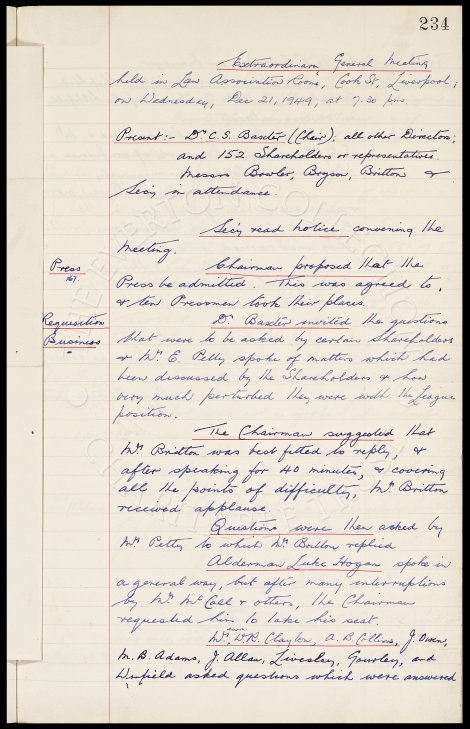 234
Extraordinary General Meeting
held in Law Association Rooms, Cook St, Liverpool;
on Wednesday, Dec 21, 1949, at 7.30 pm.
Present:- Dr. C. S. Baxter (Chair), all other Directors;
and 152 Shareholders or representatives.
Messrs Bowler, Bryson, Britton &
Sec'y in attendance.
Sec'y read notice convening the
meeting.
Press
167.
Chairman proposed that the
Press be admitted. This was agreed to,
& ten Pressmen took their places.
Requisition
Business
Dr Baxter invited the questions
that were to be asked by certain Shareholders
& Mr. E. Petty spoke of matters which had
been discussed by the Shareholders & how
very much perturbed they were with the League
position.
The Chairman suggested that
Mr Britton was best fitted to reply, &
after speaking for 40 minutes, & covering
all the points of difficulty, Mr Britton
received applause.
Questions were then asked by
Mr Petty to which Mr Britton replied
Alderman Luke Hogan spoke in
a general way, but after many interruptions
by Mr McCall & others, the Chairman
requested him to take his seat.
W. R. Clayton, A. B. Collins, J. Owen,
M. B. Adams, J. Allan, Livesley, Gourley, and
Winfield asked questions which were answered